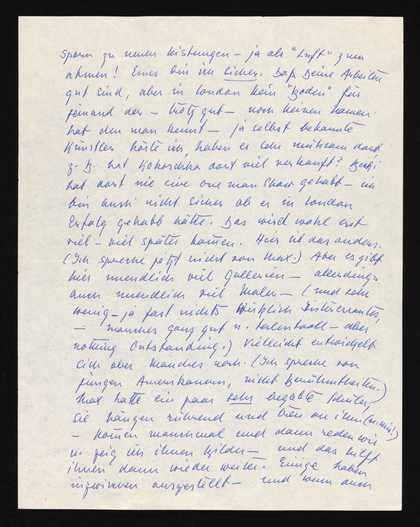 Sporn zu neuen Leistungen – ja als "Luft" zum
atmen! Eines bin ich sicher. Daß Deine Arbeiten
gut sind, aber in London kein "Boden" für
jemand der – trotz gut – noch keinen Namen
hat den man kennt – ja selbst bekannte
Künstler hörte ich haben es sehr mühsam dort
z. B. hat Kokoschka dort viel verkauft?
hat dort nie eine one man Show gehabt – ich
bin auch nicht sicher ob er in London
Erfolg gehabt hätte. Das wird wohl erst
viel – viel später kommen. Hier ist das anders.
(Ich spreche jetzt nicht von Max.) Aber es gibt
hier unendlich viel Gallerien – allerdings
auch unendlich viel Maler – (und sehr
wenig – ja fast nichts wirklich Interessantes,
– manches ganz gut u. talentvoll – aber
nothing Outstanding.) Vielleicht entwickelt
sich aber Manches noch. (Ich spreche von
jungen Amerikanern, nicht Berühmtheiten.)
Max hatte ein paar sehr begabte Schüler,
sie hängen rührend und treu an ihm (u. mir)
– kommen manchmal und dann reden wir
u. zeig ich ihnen Bilder – und das hilft
ihnen dann wieder weiter. Einige haben
inzwischen ausgestellt – und wenn auch